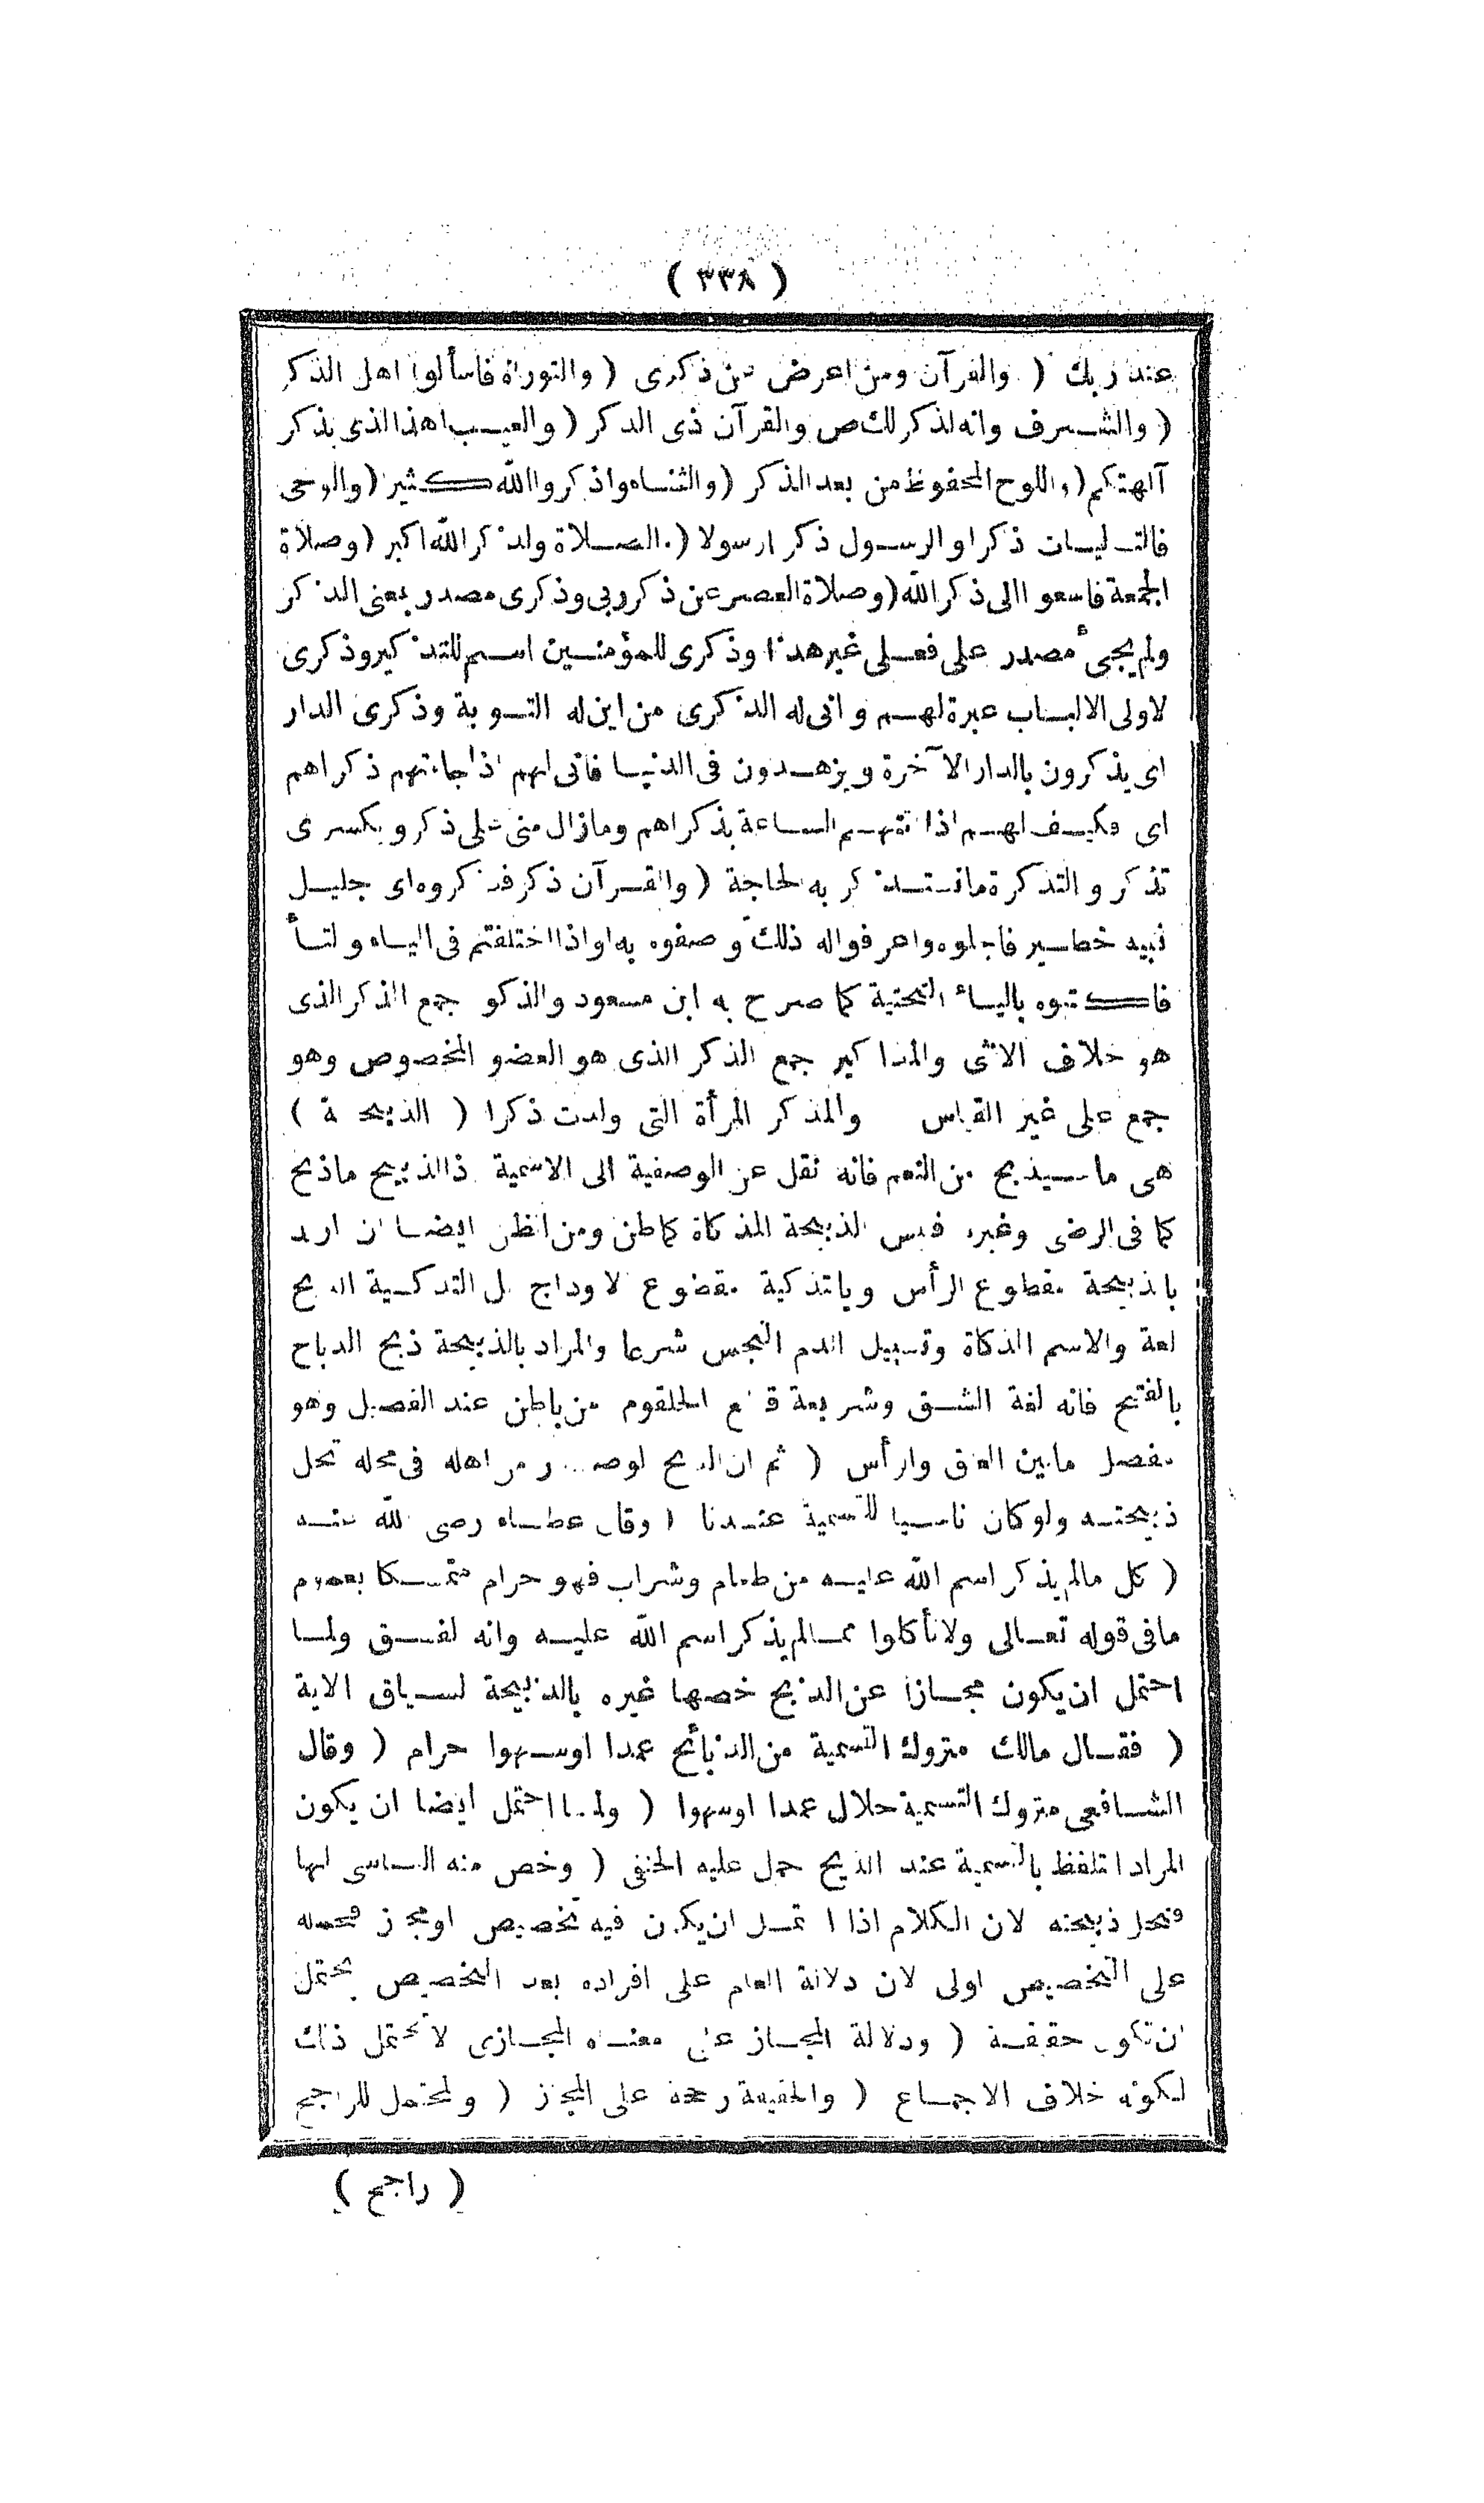 ( ٣٣٨ )
عند ربك ( والقرآن ومن اعرض عن ذكرى ( والتوراة فاسألوا اهل الذكر
( والشرف وانه لذكر لك ص والقرآن ذى الذكر ( والعيب اهذا الذى يذكر
آلهتكم ( واللوح المحفوظ من بعد الذكر ( والثناء واذكروا الله كثير ( والوحى
فالتـليات ذكرا والرسول ذكر ا رسولا ( الصلاة ولذكر الله اكبر ( وصلاة
الجمعة فاسعوا الى ذكر الله ( وصلاة العصر عن ذكر ربى وذكرى مصدر بمعنى الذكر
ولم يجئ مصدر على فعلى غير هذا وذكرى للمؤمنين اسم للتذكير وذكرى
لاولى الالباب عبرة لهم وانى له الذكرى من اين له التوبة وذكرى الدار
اى يذكرون بالدار الآخرة ويزهدون فى الدنيا فانى لهم اذا جاءتهم ذكراهم
اى فكيف لهم اذا اتتهم الساعة بذكراهم ومازال منى على ذكر ويكسر ى
تذكر والتذكرة ماتستذكر به الحاجة ( والقرآن ذكر فذكروه اى جليل
نبيه خطير فاجلوه واعرفواله ذلك وصفوه به او اذا اختلفتم فى الياء والتاء
فاكتبوه بالياء التحتية كما صرح به ابن مسعود والذكو جمع الذكر الذى
هو خلاف الانثى والمذاكير جمع الذكر الذى هو العضو المخصوص وهو
جمع على غير القياس والمذكر المرأة التى ولدت ذكرا ( الذبيحة )
هى ما سيذبح من النعم فانه نقل عن الوصفية الى الاسمية ذا الذبيح ماذبح
كما فى الرضى وغيره فليس الذبيحة المذكاة كما ظن ومن الظن ايضا ان اريد
بالذبيحة مقطوع الرأس وبالتذكية مقطوع الاوداج بل التذكية الذبح
لغة والاسم الذكاة وتسييل الدم النجس شرعا والمراد بالذبيحة ذبح الذباح
بالفتح فانه لغة الشق وشريعة قطع الحلقوم من باطن عند الفصيل وهو
مفصل مابين العنق والرأس ( ثم ان الذبح لوصدر من اهله فى محله تحل
ذبيحته ولوكان ناسيا للتسمية عندنا ( وقال عطاء رضى الله عنه
( كل مالم يذكر اسم الله عليه من طعام وشراب فهو حرام متمسكا بعموم
مافى قوله تعالى ولا تأكلوا مما لم يذكر اسم الله عليه وانه لفسق ولما
احتمل ان يكون مجازا عن الذبح خصها غيره بالذبيحة لسياق الاية
( فقال مالك متروك التسمية من الذبائح عمدا اوسهوا حرام ( وقال
الشافعى متروك التسمية حلال عمدا اوسهوا ( ولما احتمل ايضا ان يكون
المراد التلفظ بالتسمية عند الذبح حمل عليه الحنفى ( وخص منه الناسى لها
فتحل ذبيحته لان الكلام اذا احتمل ان يكون فيه تخصيص اومجاز فحمله
على التخصيص اولى لان دلالة العام على افراده بعد التخصيص يحتمل
ان تكون حقيقة ( ودلالة المجاز على معناه المجازى لاتحتمل ذلك
لكونه خلاف الاجماع ( والحقيقة راجحة على المجاز ( والمحتمل للراجح
( راجح )